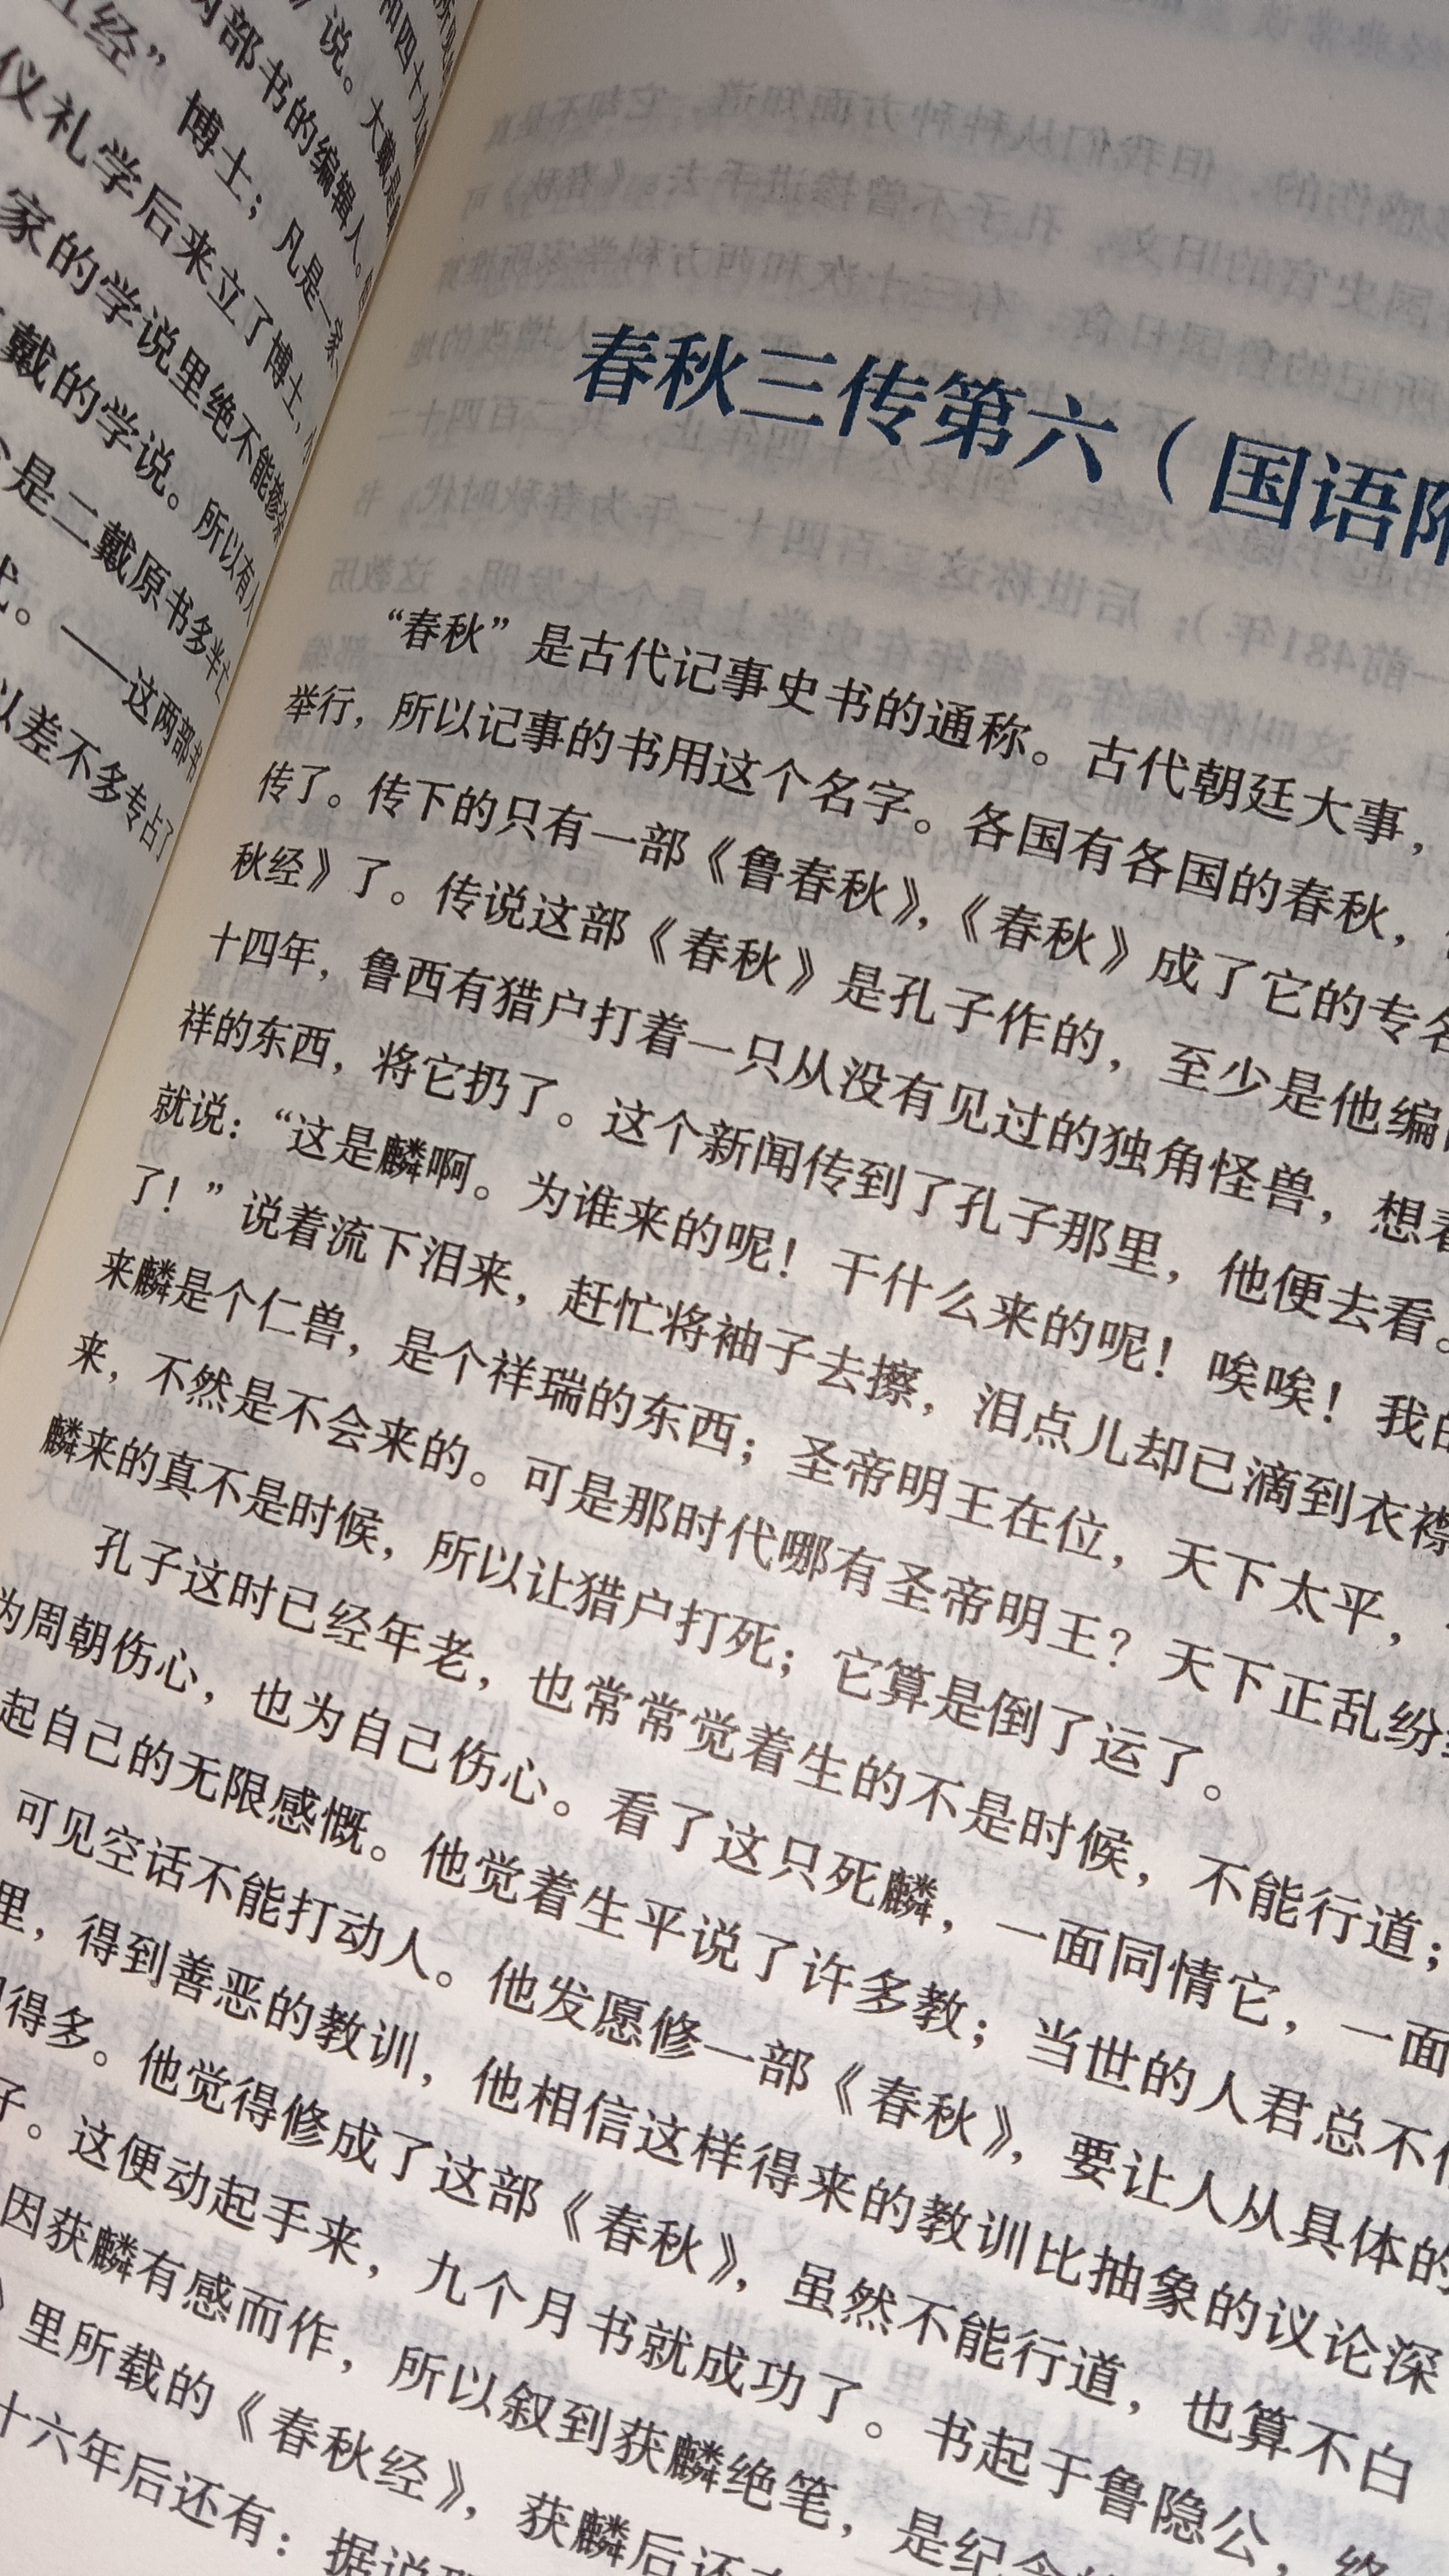 五经”博士；凡是一家
仪礼学后来立了博士，
家的学说里绝不能掺杂
戴的学说。所以有人
是二戴原书多半亡
。——这两部书
以差不多专占了
两部书的编辑人。
说。大戴是
和四十九
春秋三传第六（国语附
“春秋”是古代记事史书的通称。古代朝廷大事，
举行，所以记事的书用这个名字。各国有各国的春秋，
传了。传下的只有一部《鲁春秋》，《春秋》成了它的专名
秋经》了。传说这部《春秋》是孔子作的，至少是他编的
十四年，鲁西有猎户打着一只从没有见过的独角怪兽，想着
祥的东西，将它扔了。这个新闻传到了孔子那里，他便去看。
就说：“这是麟啊。为谁来的呢！干什么来的呢！唉唉！我的
了！”说着流下泪来，赶忙将袖子去擦，泪点儿却已滴到衣襟
来麟是个仁兽，是个祥瑞的东西；圣帝明王在位，天下太平，
来，不然是不会来的。可是那时代哪有圣帝明王？天下正乱纷
麟来的真不是时候，所以让猎户打死；它算是倒了运了。
孔子这时已经年老，也常常觉着生的不是时候，不能行道；
为周朝伤心，也为自己伤心。看了这只死麟，一面同情它，一面
起自己的无限感慨。他觉着生平说了许多教；当世的人君总不
可见空话不能打动人。他发愿修一部《春秋》，要让人从具体的
里，得到善恶的教训，他相信这样得来的教训比抽象的议论深
得多。他觉得修成了这部《春秋》，虽然不能行道，也算不白
子。这便动起手来，九个月书就成功了。书起于鲁隐公，终
因获麟有感而作，所以叙到获麟绝笔，是纪念
》里所载的《春秋经》，获麟后还
十六年后还有：据说